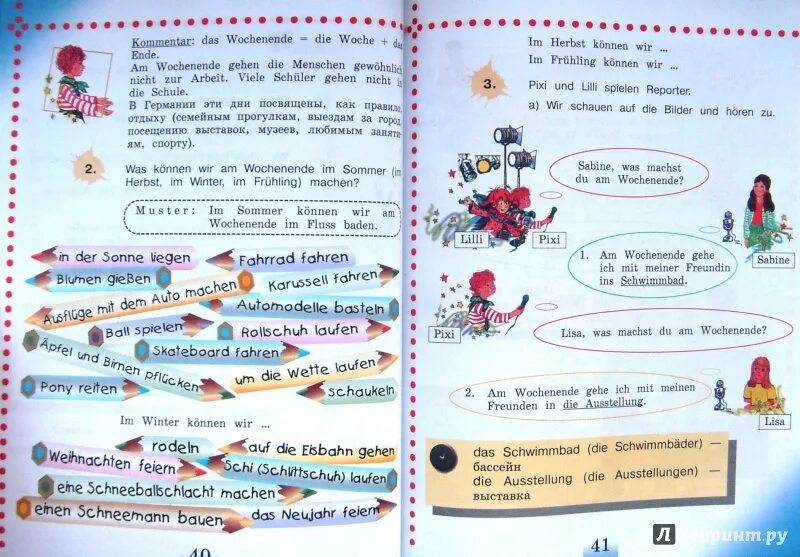 Kommentar: das Wochenende = die Woche + das
Ende.
Am Wochenende gehen die Menschen gewöhnlich
nicht zur Arbeit. Viele Schüler gehen nicht in
die Schule.
В Германии эти дни посвящены, как правило,
отдыху (семейным прогулкам, выездам за город,
посещению выставок, музеев, любимым заняти-
ям, спорту).
2.
Was können wir am Wochenende im Sommer (im
Herbst, im Winter, im Frühling) machen?
Muster: Im Sommer können wir am
Wochenende im Fluss baden.
in der Sonne liegen
Fahrrad fahren
Blumen gießen
Karussell fahren
Ausflüge mit dem Auto machen
Automodelle basteln
Ball spielen
Rollschuh laufen
Äpfel und Birnen pflücken
Skateboard fahren
um die Wette laufen
Pony reiten
schaukeln
Im Winter können wir ...
rodeln
auf die Eisbahn gehen
Weihnachten feiern
Schi (Schlittschuh) laufen
eine Schneeballschlacht machen
einen Schneemann bauen
das Neujahr feiern
40
Im Herbst können wir ...
Im Frühling können wir ...
3.
Pixi und Lilli spielen Reporter.
a) Wir schauen auf die Bilder und hören zu.
Sabine, was machst
du am Wochenende?
Lilli
Pixi
1. Am Wochenende gehe
ich mit meiner Freundin
ins Schwimmbad.
Sabine
Pixi
Lisa, was machst du am Wochenende?
2. Am Wochenende gehe ich mit meinen
Freunden in die Ausstellung.
Lisa
das Schwimmbad (die Schwimmbäder) —
бассейн
die Ausstellung (die Ausstellungen) —
выставка
41
Лабиринт.ру